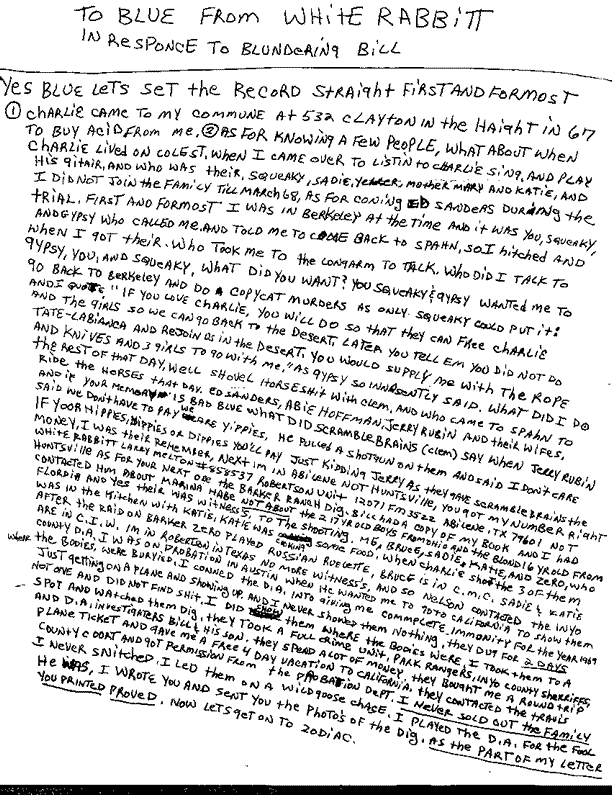 TO BLUE FROM WHITE RABBITT
IN RESPONCE TO BLUNDERING BILL
YES BLUE LETS SET the RECORD STRAIGHT FIRST AND FORMOST
① CHARLIE CAME TO MY COMMUNE AT 532 CLAYTON IN the HAIGHT IN 67
TO BUY ACID FROM ME. ② AS FOR KNOWING A FEW PEOPLE, WHAT ABOUT WHEN
CHARLIE LIVED ON COLEST. WHEN I CAME OVER TO LISTIN TO CHARLIE SING, AND PLAY
HIS GITAIR, AND WHO WAS THEIR, SQUEAKY, SADIE, MOTHER MARY AND KATIE, AND
I DID NOT JOIN the FAMILY TILL MARCH 68, AS FOR CONING ED SANDERS DURING the
TRIAL. FIRST AND FORMOST I WAS IN BERKELEY AT the TIME AND IT WAS YOU, SQUEAKY,
AND GYPSY WHO CALLED ME, AND TOLD ME TO COME BACK TO SPAHN, SO I HITCHED AND
WHEN I GOT THEIR. WHO TOOK ME TO the LONGARM TO TALK. WHO DID I TALK TO
GYPSY, YOU, AND SQUEAKY, WHAT DID YOU WANT? YOU SQUEAKY & GYPSY WANTED ME TO
GO BACK TO BERKELEY AND DO A COPYCAT MURDERS AS ONLY SQUEAKY COULD PUT IT!
AND I QUOTE "IF YOU LOVE CHARLIE, YOU WILL DO SO THAT they CAN FREE CHARLIE
AND the GIRLS SO WE CAN GO BACK TO the DESERT, LATER YOU TELL EM YOU DID NOT DO
TATE-LABIANCA AND REJOIN US IN the DESERT. YOU WOULD SUPPLY ME WITH the ROPE
AND KNIVES AND 3 GIRLS TO GO WITH ME," AS GYPSY SO INNASENTLY SAID. WHAT DID I DO
the REST OF THAT DAY, WELL SHOVEL HORSESHIT WITH CLEM, AND WHO CAME TO SPAHN TO
RIDE the HORSES THAT DAY. ED SANDERS, ABIE HOFFMAN, JERRY RUBIN AND their WIFES,
AND IF YOUR MEMORY IS BAD BLUE WHAT DID SCRAMBLE BRAINS (CLEM) SAY WHEN JERRY RUBIN
SAID WE DONT HAVE TO PAY WE ARE YIPPIES, HE PULLED A SHOTGUN ON THEM AND SAID I DONT CARE
IF YOOR HIPPIES, DIPPIES YOU'LL PAY JUST KIDDING JERRY AS they GAVE SCRAMBLE BRAINS the
MONEY, I WAS THEIR REMEMBER, NEXT IM IN ABILENE NOT HUNTSVILLE, YOU GOT MY NUMBER RIGHT
WHITE RABBITT LARRY MELTON #858537 ROBERTSON UNIT 12071 FM 3522 ABILENE, TX 79601 NOT
HUNTSVILLE AS FOR YOUR NEXT ONE the BARKER RANCH DIG. BILL HAD A COPY OF MY BOOK AND I HAD
CONTACTED HIM ABOUT MARINA HABE NOT ABOUT the 2 17 YR OLD BOYS FROM OHIO AND the BLOND 16 YR OLD FROM
FLORDIA AND YES their WAS WITNESS'S, TO the SHOOTING. ME, BRUCE, SADIE, KATIE, AND ZERO, WHO
WAS IN the KITCHEN WITH KATIE, KATIE WAS SOME FOOD. WHEN CHARLIE SHOT the 3 OF THEM
AFTER the RAID ON BARKER ZERO PLAYED RUSSIAN RUELETTE, BRUCE IS IN C.M.C. SADIE & KATIE
ARE IN C.I.W. IM IN ROBERTSON IN TEXAS NO MORE WITNESS'S, AND SO NELSON CONTACTED the INYO
COUNTY D.A. I WAS ON PROBATION IN AUSTIN WHEN HE WANTED ME TO GO TO CALIFORNIA TO SHOW THEM
WHERE the BODIES, WERE BURIED. I CONNED the D.A. INTO GIVING ME COMMPLETE IMMUNITY FOR the YEAR 1969
JUST GETTING ON A PLANE AND SHOWING UP, AND I NEVER SHOWED THEM NOTHING, they DUG FOR 2 DAYS
NOT ONE AND DID NOT FIND SHIT. I DID SHOW THEM WHERE the BODIES WERE, I TOOK THEM TO A
SPOT AND WATCHED THEM DIG, they TOOK A FULL CRIME UNIT, PARK RANGERS, INYO COUNTY SHERRIFFS,
AND D.A. INVESTIGATERS BILL & HIS SON. they SPEND A LOT OF MONEY, they BOUGHT ME A ROUND TRIP
PLANE TICKET AND GAVE ME A FREE 4 DAY VACATION TO CALIFORNIA, they CONTACTED the TRAVIS
COUNTY COORT AND GOT PERMISSION FROM the PROBATION DEPT. I NEVER SOLD OUT the FAMILY
I NEVER SNITCHED. I LED THEM ON A WILD GOOSE CHASE. I PLAYED the D.A. FOR the FOOL
HE WAS, I WROTE YOU AND SENT YOU the PHOTO'S OF the DIG. AS the PART OF MY LETTER
YOU PRINTED PROVED. NOW LETS GET ON TO ZODIAC.